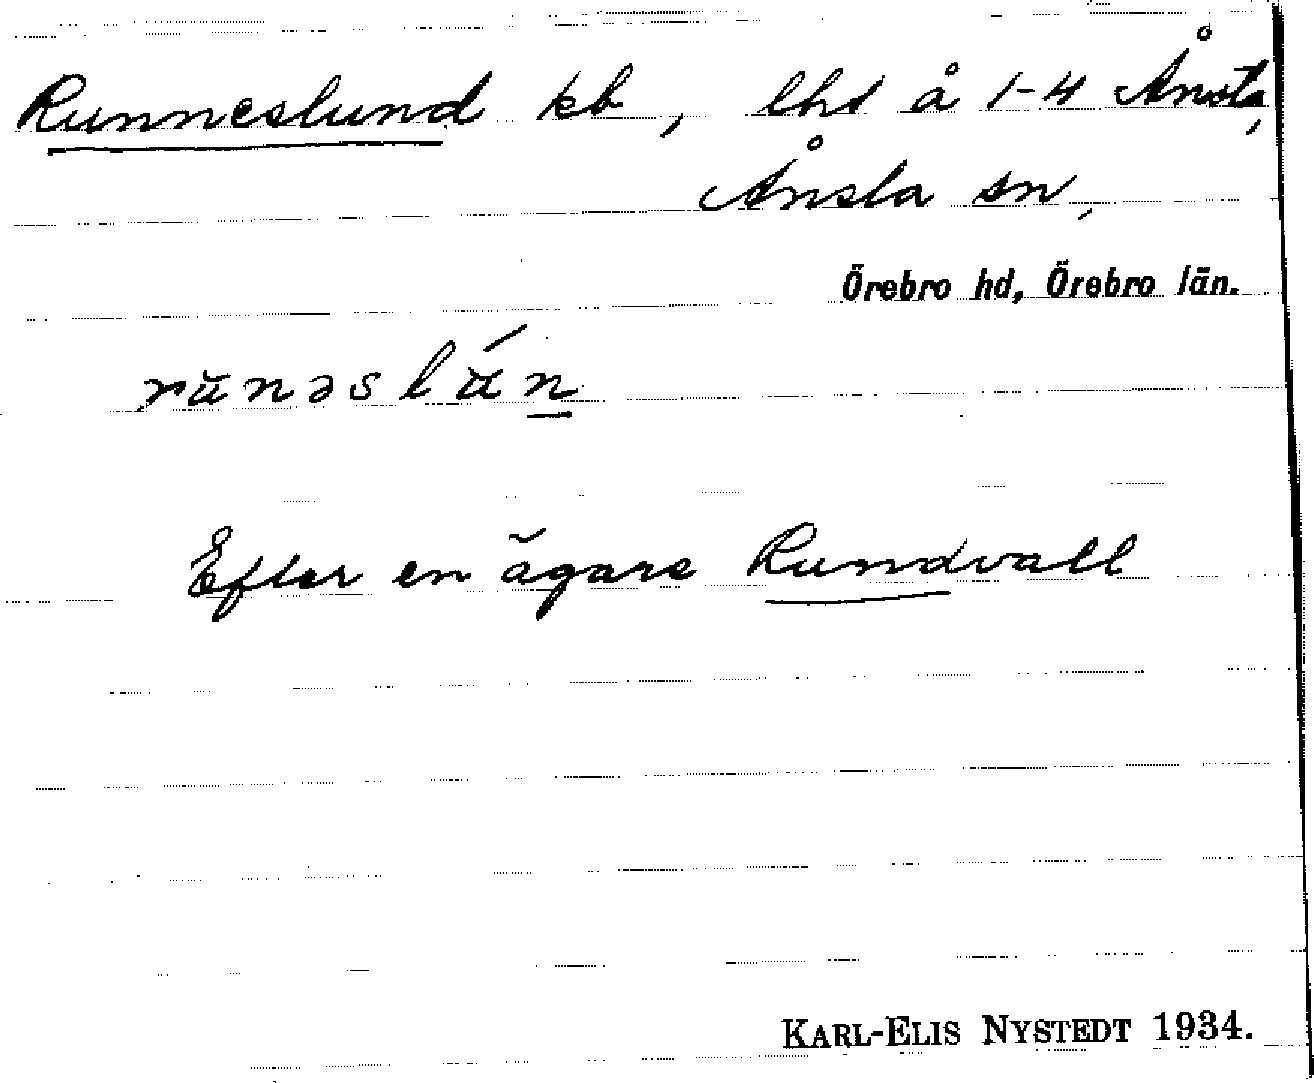 Runneslund kb, lht å 1-4 Ånsta,
Ånsta sn,
Örebro hd, Örebro län.
rŭnəslŭ́n
Efter en ägare Rundvall
KARL-ELIS NYSTEDT 1934.